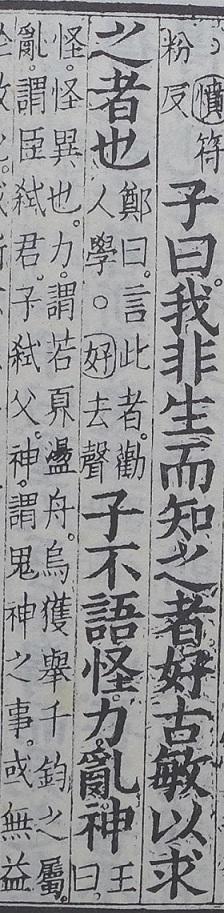 憤符
粉反
子曰。我非生而知之者好古敏以求
之者也
鄭曰。言此者。勸
人學。○好去聲
子不語怪力亂神
王
曰
怪。怪異也。力。謂若奡盪舟。烏獲舉千鈞之屬。
亂。謂臣弒君。子弒父。神。謂鬼神之事。或無益